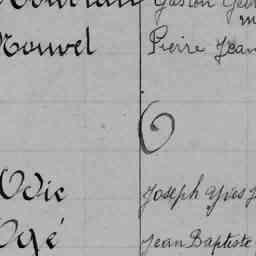 Gaston
Nouvel Pierre Jean
O
Odic Joseph Yves
Ogé Jean Baptiste